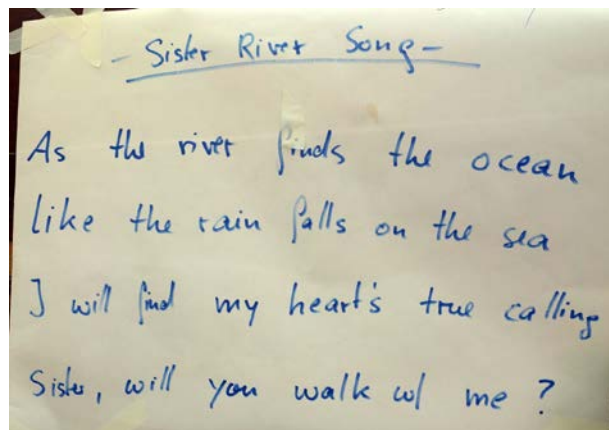 - Sister River Song -
As the river finds the ocean
like the rain falls on the sea
I will find my heart's true calling
Sister, will you walk w/ me ?